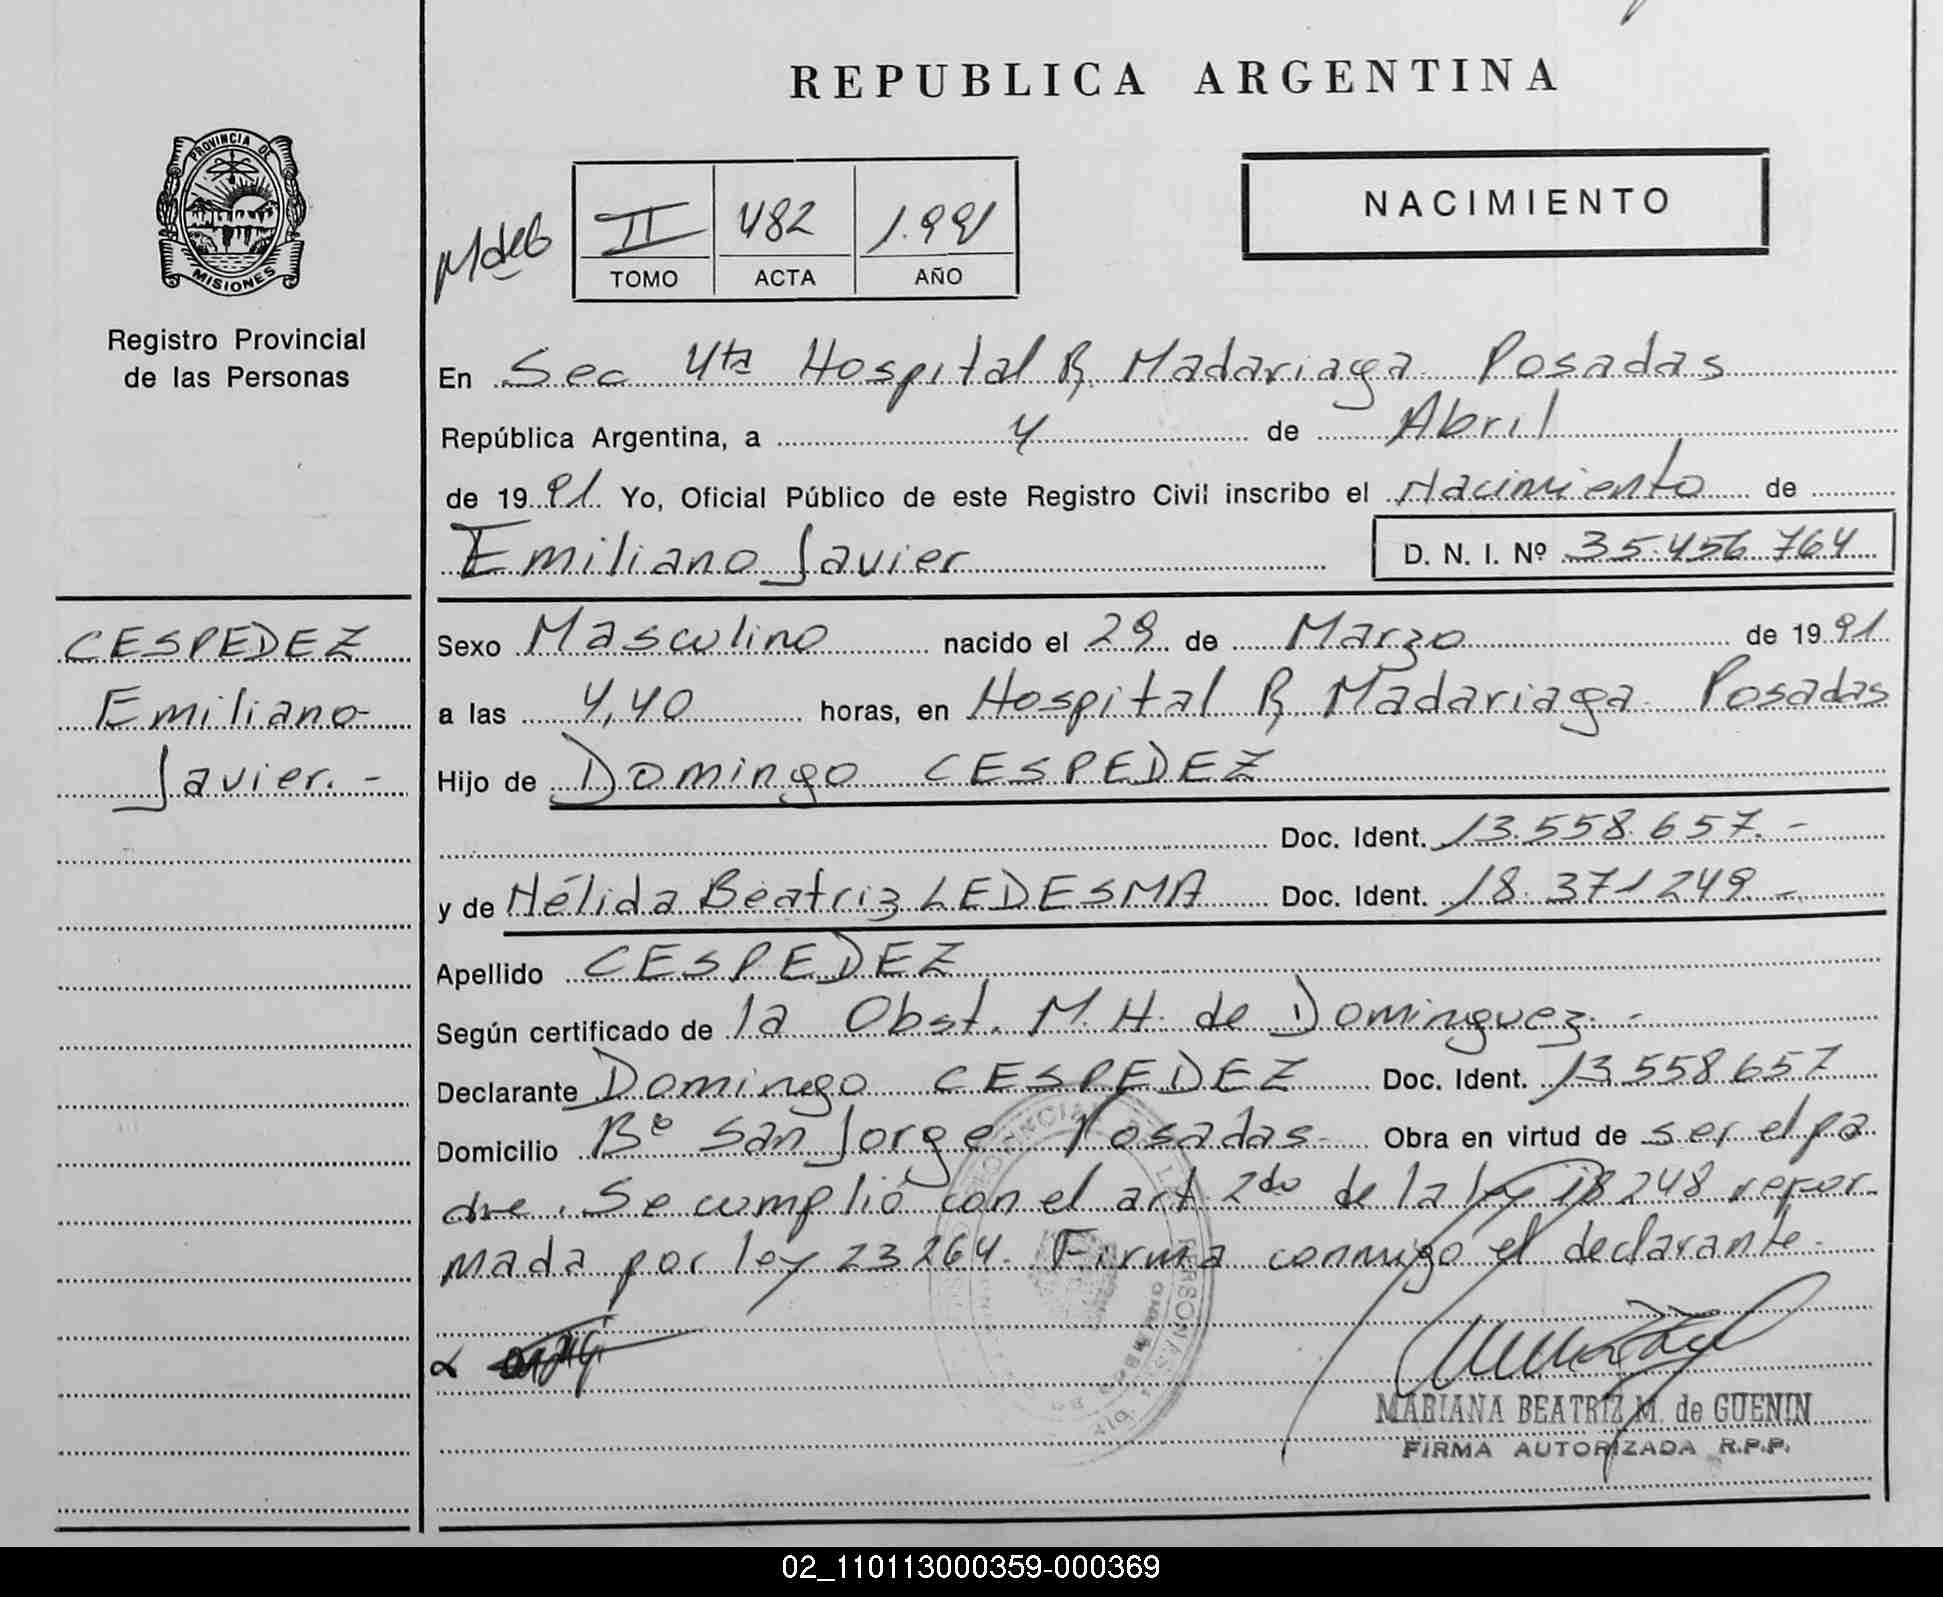 REPUBLICA ARGENTINA
PROVINCIA DE
MISIONES
Registro Provincial
de las Personas
NACIMIENTO
II 482 1.991
TOMO ACTA AÑO
En Sec 4ta Hospital R, Madariaga Posadas
República Argentina, a 4 de Abril
de 1991 Yo, Oficial Público de este Registro Civil inscribo el Nacimiento de
Emiliano Javier D. N. I. Nº 35.456 764
CESPEDEZ
Emiliano
Javier.-
Sexo Masculino nacido el 29 de Marzo de 1991
a las 4,40 horas, en Hospital R, Madariaga Posadas
Hijo de Domingo CESPEDEZ
Doc. Ident. 13.558.657.-
y de Nélida Beatriz LEDESMA Doc. Ident. 18.371249.-
Apellido CESPEDEZ
Según certificado de la Obst. M. H. de Dominguez.-
Declarante Domingo CESPEDEZ Doc. Ident. 13558657
Domicilio Bº San Jorge Posadas Obra en virtud de ser el pa
dre. Se cumplió con el art. 2do de la ley 18248 refor
mada por ley 23264. Firma conmigo el declarante.
MARIANA BEATRIZ M. de GUENIN
FIRMA AUTORIZADA R.P.P.
02_110113000359-000369